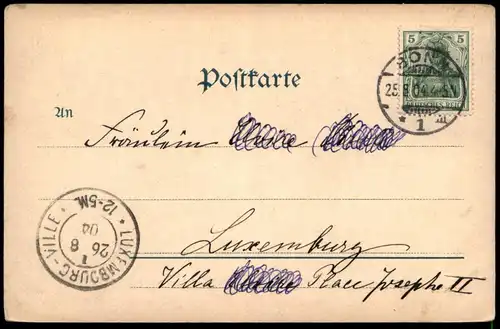 5 5
DEUTSCHES REICH
BONN
25.8.04.4-5N
* 1 m
Postkarte
An
Fräulein
Luxemburg
Villa Place Joseph II
LUXEMBOURG-VILLE
12-5M
26 8
04
1